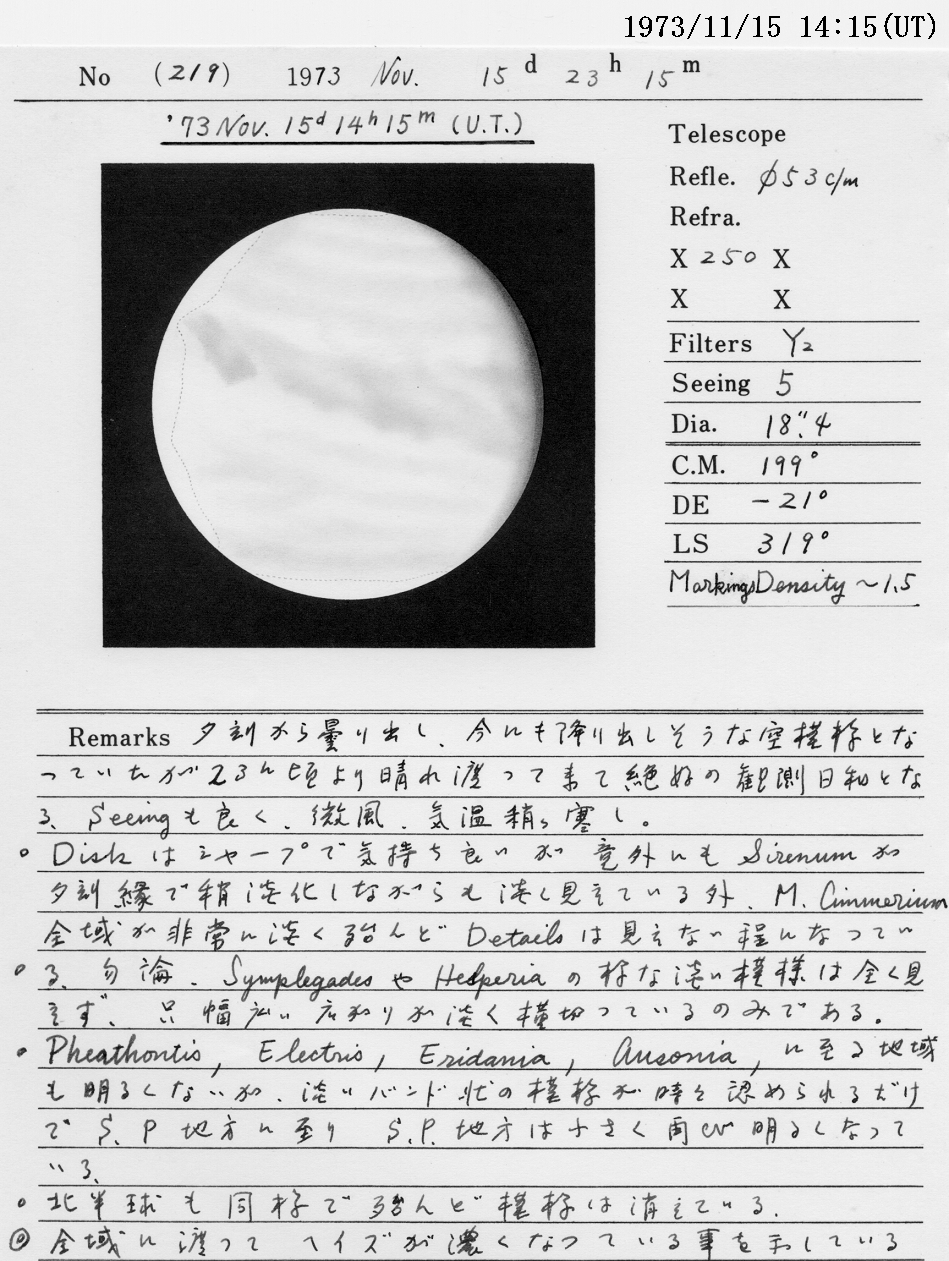 1973/11/15 14:15(UT)
No (219) 1973 Nov. 15 d 23 h 15 m
'73 Nov. 15d 14h 15m (U.T.)
Telescope
Refle. φ53 c/m
Refra.
X 250 X
X X
Filters Y2
Seeing 5
Dia. 18".4
C.M. 199°
DE -21°
LS 319°
Markings Density ~1.5
Remarks 夕刻から曇り出し、今にも降り出しそうな空模様とな
っていたが23h頃より晴れ渡って来て絶好の観測日和とな
る。Seeingも良く、微風、気温稍々寒し。
○ Diskはシャープで気持ち良いが意外にも Sirenum が
夕刻縁で稍淡化しながらも淡く見えている外、M. Cimmerium
全域が非常に淡く殆んど Detailsは見えない程になってい
○ る、勿論、Symplegades や Hesperia の様な淡い模様は全く見
えず、只幅広い広がりが淡く横切っているのみである。
○ Pheathontis, Electris, Eridania, Ausonia, に至る地域
も明るくないが、淡いバンド状の模様が時々認められるだけ
で S.P 地方に至り S.P.地方は小さく両cv明るくなって
いる、
○ 北半球も同様で殆んど模様は消えている.
◎ 全域に渡って ヘイズが濃くなっている事を示している